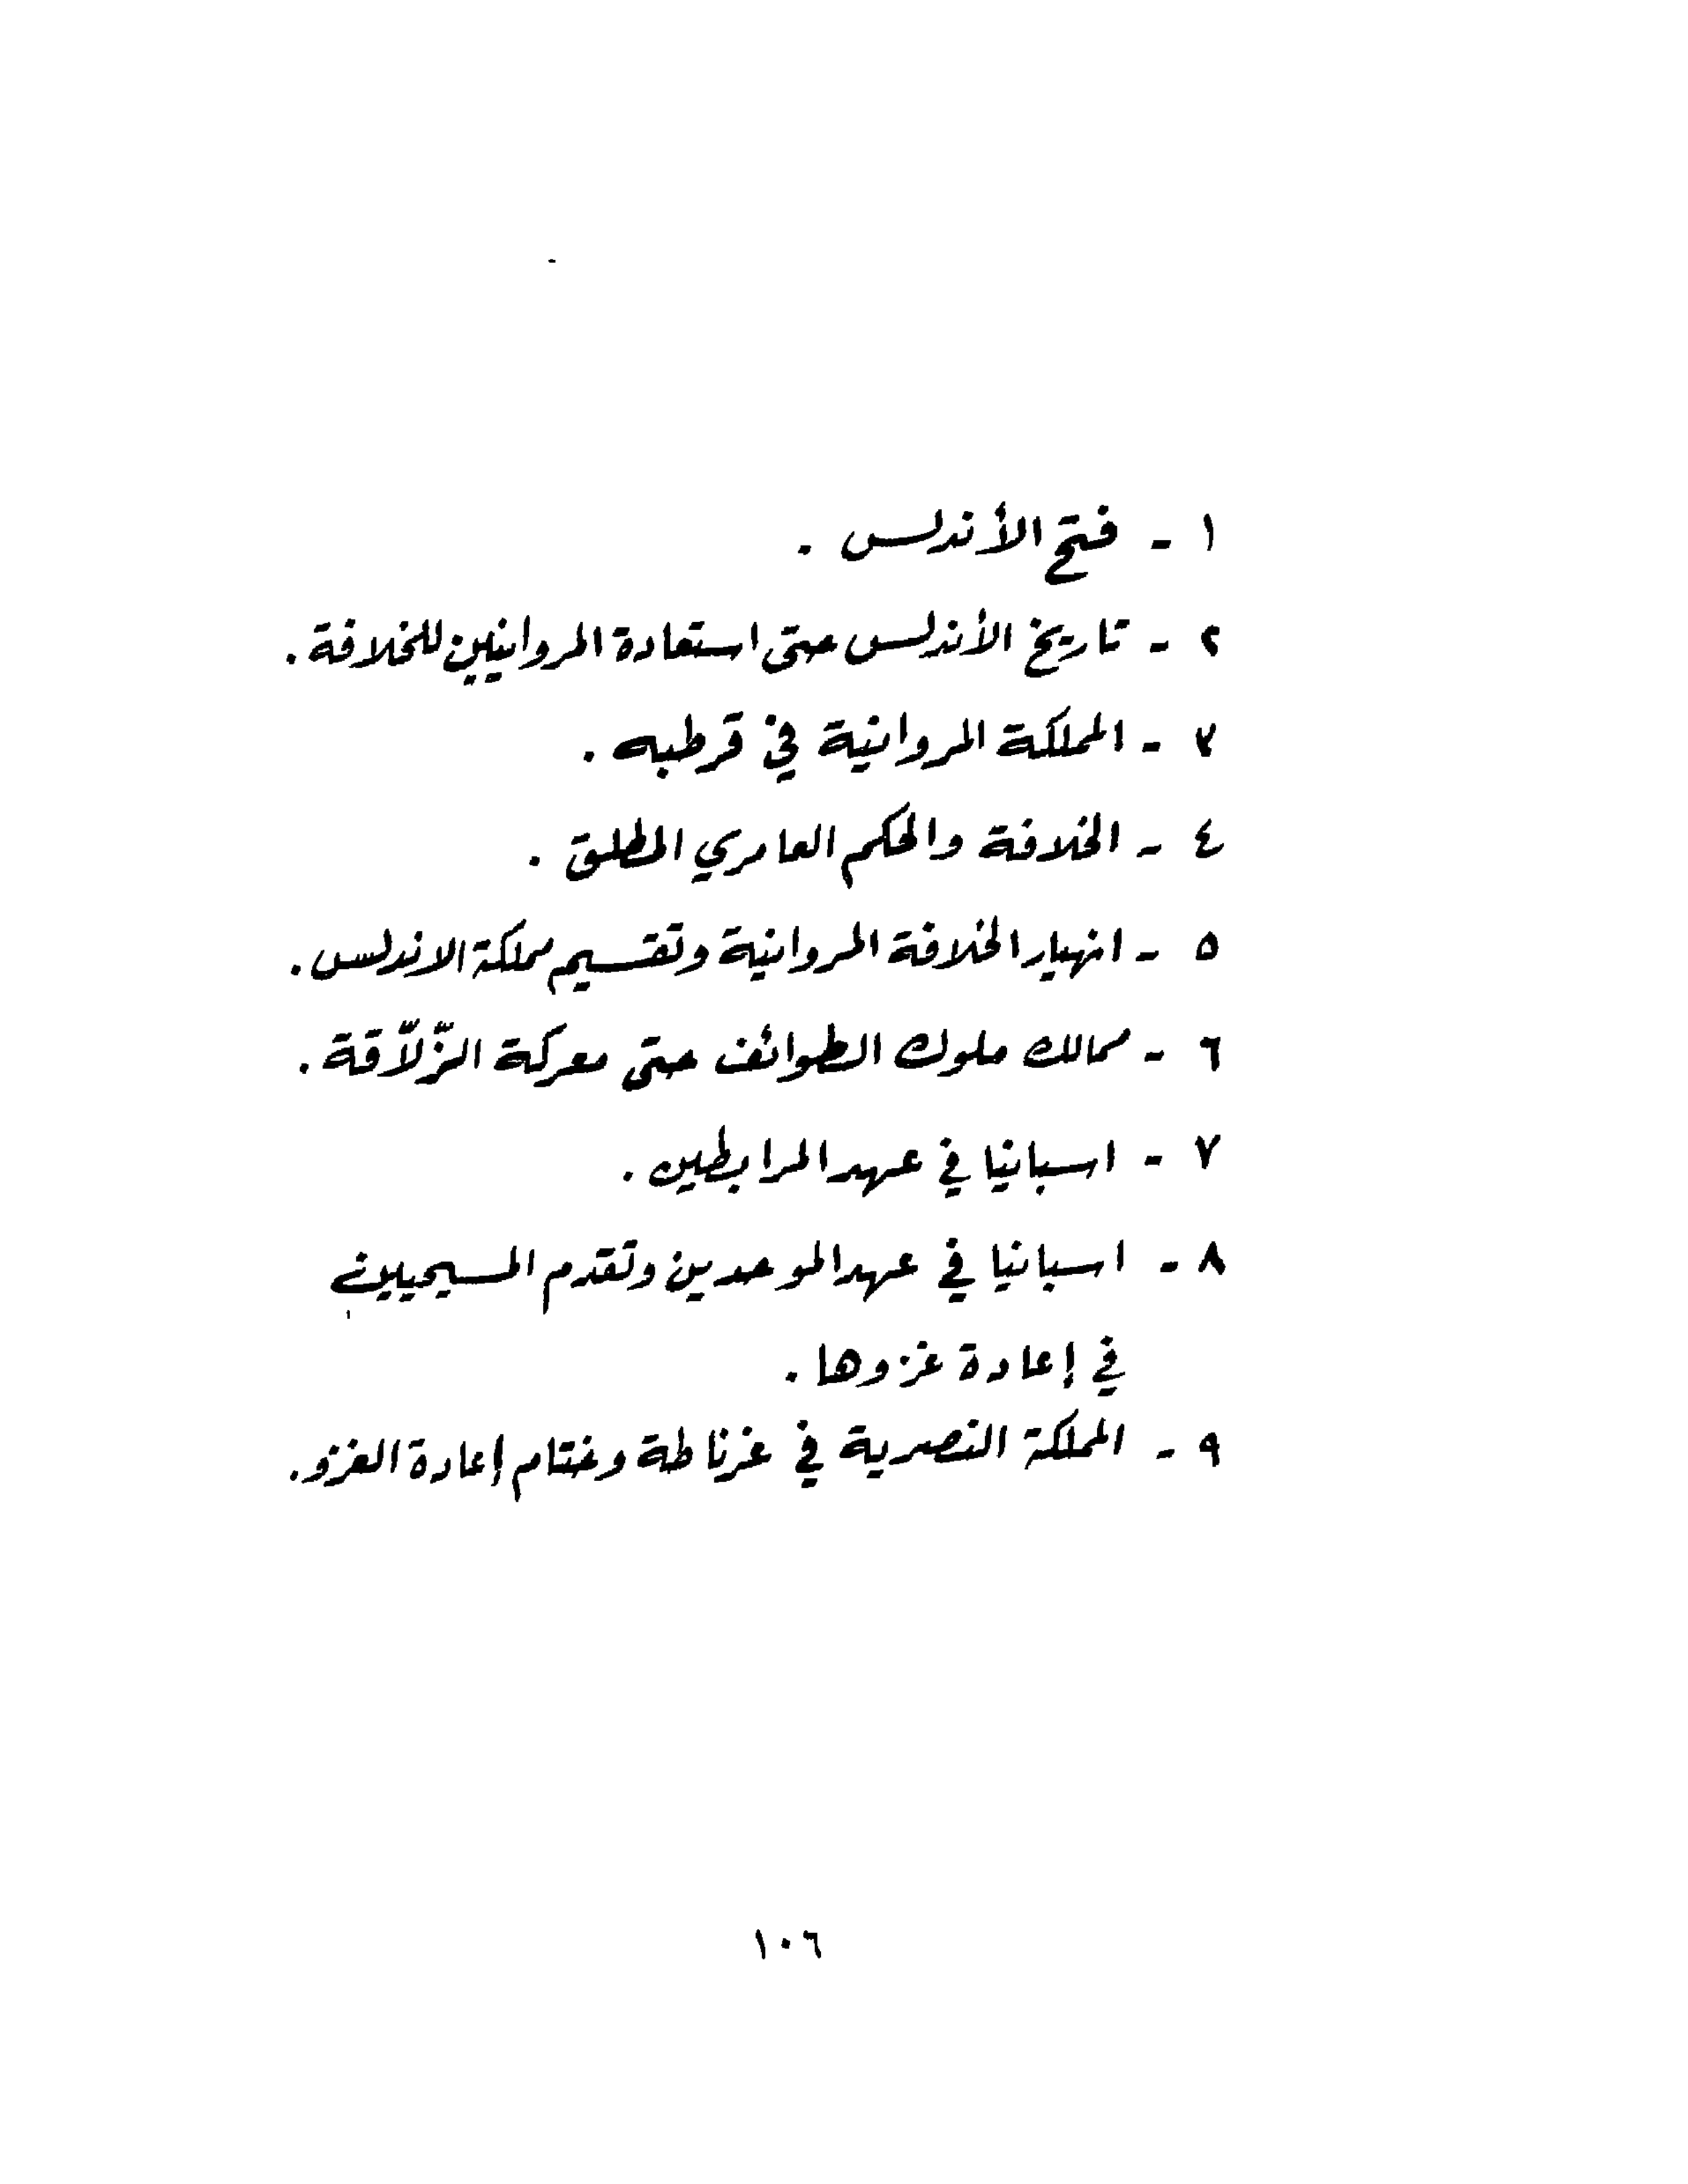 ١ - فتح الأندلس .
٢ - تاريخ الأندلس حتى استعادة المروانيين للخلافة .
٣ - المملكة المروانية في قرطبه .
٤ - الخلافة والحكم العامري المطلق .
٥ - انهيار الخلافة المروانية وتقسيم مملكة الاندلس .
٦ - ممالك ملوك الطوائف حتى معركة الزّلاّقة .
٧ - اسبانيا في عهد المرابطين .
٨ - اسبانيا في عهد الموحدين وتقدم المسيحيين
في إعادة غزوها .
٩ - المملكة النصرية في غرناطة وختام إعادة الغزو .
١٠٦